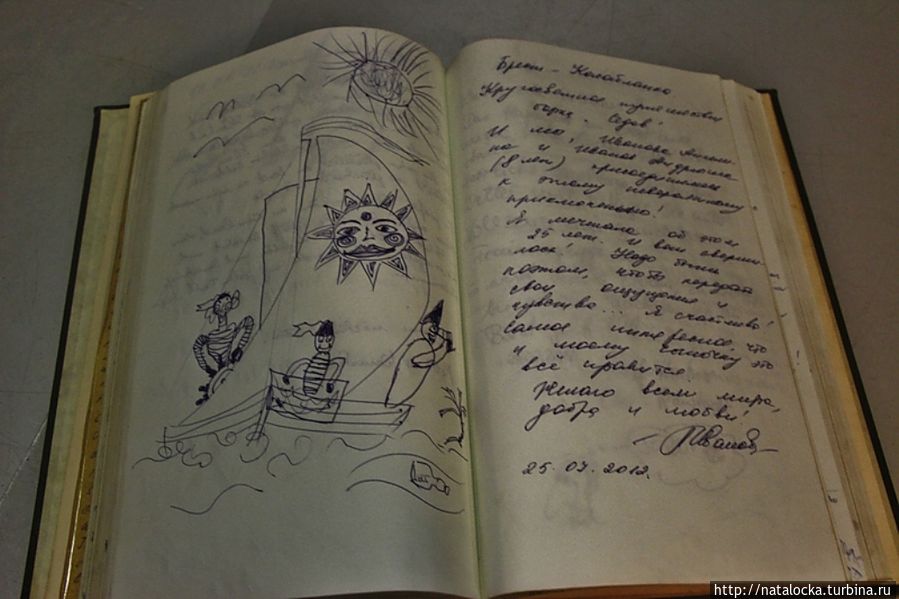 Брест - Касабланка
Кругосветное путешествие
барка "Седов".
И мы, Иванова
на и Иванов Андрюша
(8 лет) присоединились
к этому невероятному
приключению!
Я мечтала об этом
25 лет. И вот сверши-
лось! Надо быть
поэтом, чтобы передать
свои ощущения и
чувства... Я счастлива!
Самое интересное, что
и моему сыночку это
всё нравится.
Желаю всем мира,
добра и любви!
Иванова
25.07.2012.
http://natalocka.turbina.ru